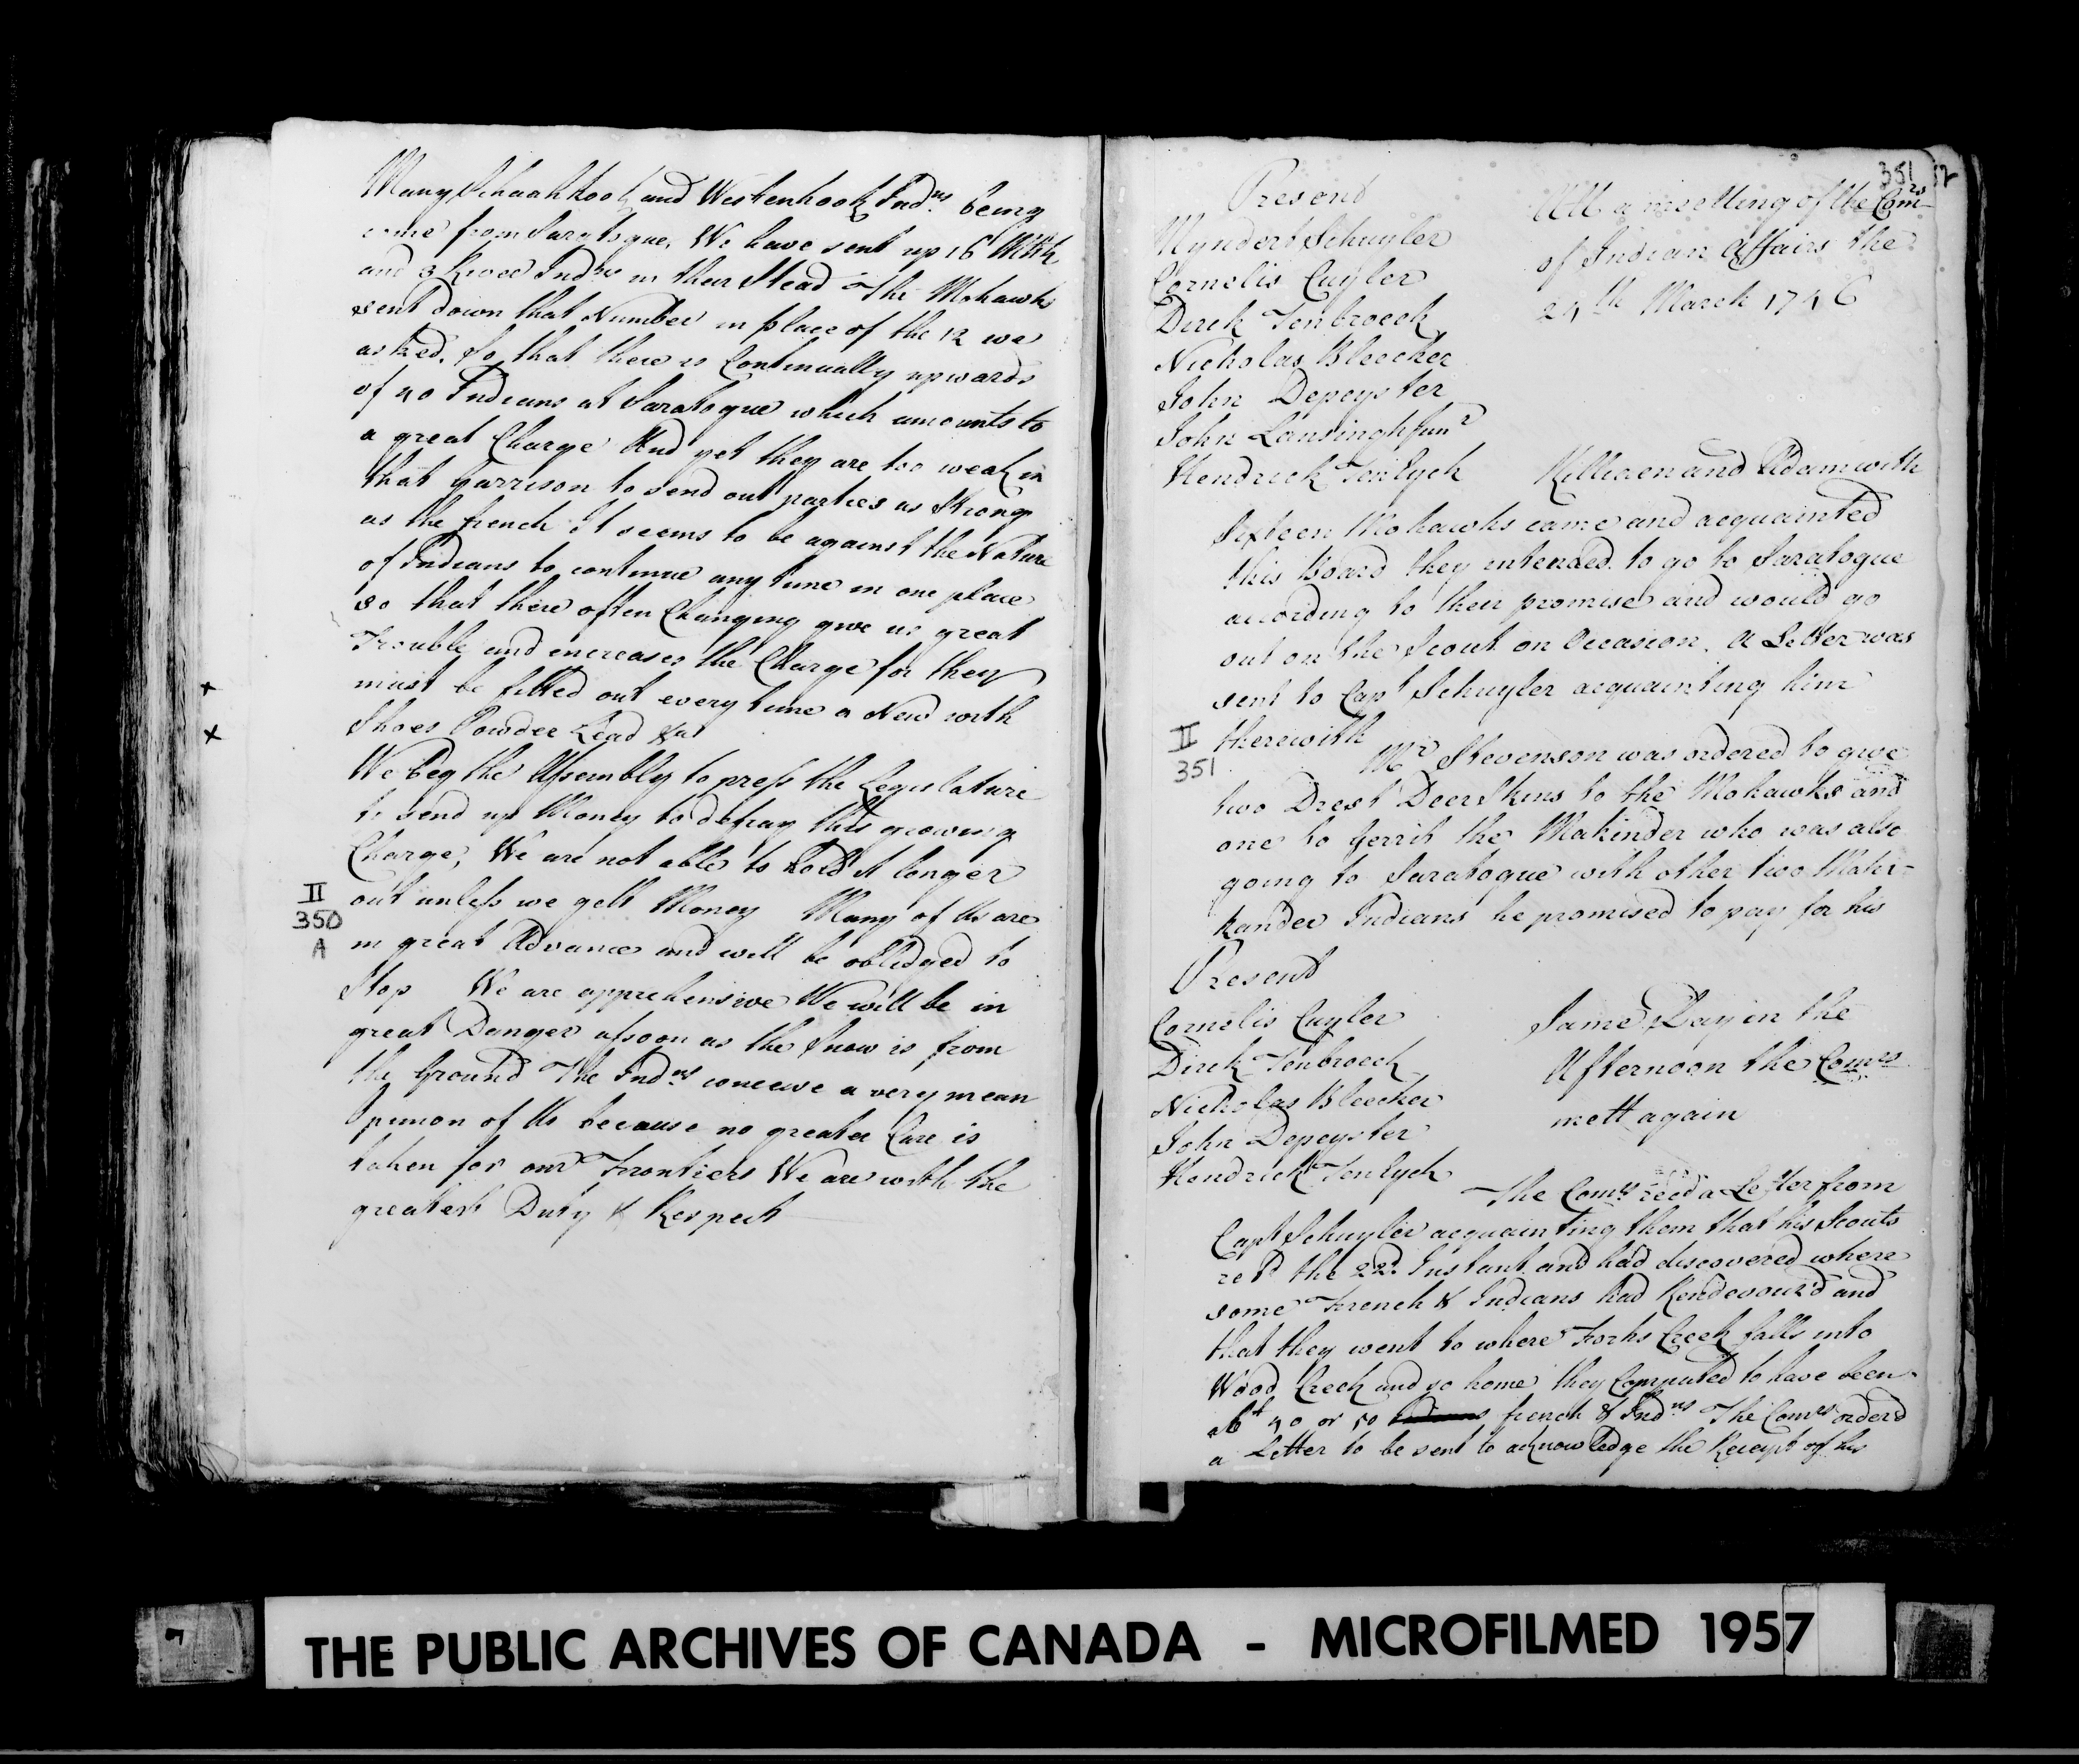 Many Schaahkook and Westenhook Indns. being
come from Saragtogue, We have sent up 16 Mhk
and 3 River Indns in their Stead The Mohawks
sent down that Number in place of the 12 we
asked, So that there is Continually upwards
of 40 Indians at Saratogue which amounts to
a great Charge And yet they are too weak in
that Garrison to send out parties as Strong
as the french It seems to be against the Nature
of Indians to continue any time in one place
so that there often Changing give us great
Trouble and increases the Charge for they
must be fitted out every time a New with
Shoes Powder Lead &ca
We beg the Assembly to press the Legislature
to send up Money to defray this growing
Charge, We are not able to hold it longer
out unless we gett Money Many of Us are
II
350
A
in great Advance and will be oblidged to
Stop We are apprehensive We will be in
great Danger assoon as the Snow is from
the Ground The Indns conceive a very mean
Opinion of Us because no greater Care is
taken for our Frontiers We are with the
greatest Duty & Respect
351 12
Present
Myndert Schuyler
Cornelis Cuyler
Dirck Tenbroeck
Nicholas Bleecker
John Depeyster
John Lansingh Junr
Hendrick TenEyck
Att a meetting of the Comrs
of Indian Affairs the
24th March 1746
Killiaen and Adam with
Sixteen Mohawks came and acquainted
this Board they intended to go to Saratogue
according to their promise and would go
out on the Scout on Occasion. A Letter was
sent to Capt Schuyler acquainting him
therewith
II
351
Mr Stevenson was ordered to give
two Drest Deer Skins to the Mohawks and
one to Gerrit the Makinder who was also
going to Saratogue with other two Mahi-
kander Indians he promised to pay for his
Present
Cornelis Cuyler
Dirck Tenbroeck
Nicholas Bleecker
John Depeyster
Hendrick TenEyck
Same Day in the
Afternoon the Comrs
mett again
The Comrs recd a Letter from
Capt Schuyler acquainting them that his Scouts
retd the 22d. Instant and had discovered where
some French & Indians had Rendevouz'd and
that they went to where Forks Creek falls into
Wood Creek and so home they Computed to have been
abt 40 or 50 Indians french & Indns The Comrs orderd
a Letter to be sent to acknowledge the Receipt of his
THE PUBLIC ARCHIVES OF CANADA - MICROFILMED 1957